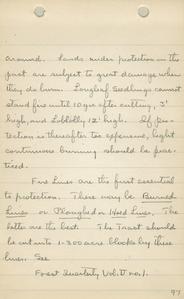 around. Lands under protection in the
past are subject to great damage when
they do burn. Longleaf Seedlings cannot
stand fire until 10 yrs after cutting, 3'
high, and Loblolly 12' high. If pro-
tection is thereafter too expensive, light
continuous burning should be prac-
ticed.
Fire Lines are the first essential
to protection. These may be Burned
Lines or Ploughed or Hoed Lines. The
latter are the best. The Tract should
be cut into 1-300 acre blocks by these
lines. See
Forest Quarterly Vol. V no. 1.
97